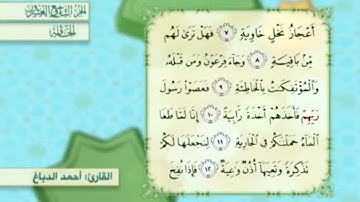 الجزء التاسع والعشرون
الحاقة
أَعْجَازُ نَخْلٍ خَاوِيَةٍ ٧ فَهَلْ تَرَىٰ لَهُم
مِّنۢ بَاقِيَةٍ ٨ وَجَآءَ فِرْعَوْنُ وَمَن قَبْلَهُۥ
وَٱلْمُؤْتَفِكَٰتُ بِٱلْخَاطِئَةِ ٩ فَعَصَوْا۟ رَسُولَ
رَبِّهِمْ فَأَخَذَهُمْ أَخْذَةً رَّابِيَةً ١٠ إِنَّا لَمَّا طَغَا
ٱلْمَآءُ حَمَلْنَٰكُمْ فِى ٱلْجَارِيَةِ ١١ لِنَجْعَلَهَا لَكُمْ
تَذْكِرَةً وَتَعِيَهَآ أُذُنٌ وَٰعِيَةٌ ١٢ فَإِذَا نُفِخَ
القارئ: أحمد الدباغ